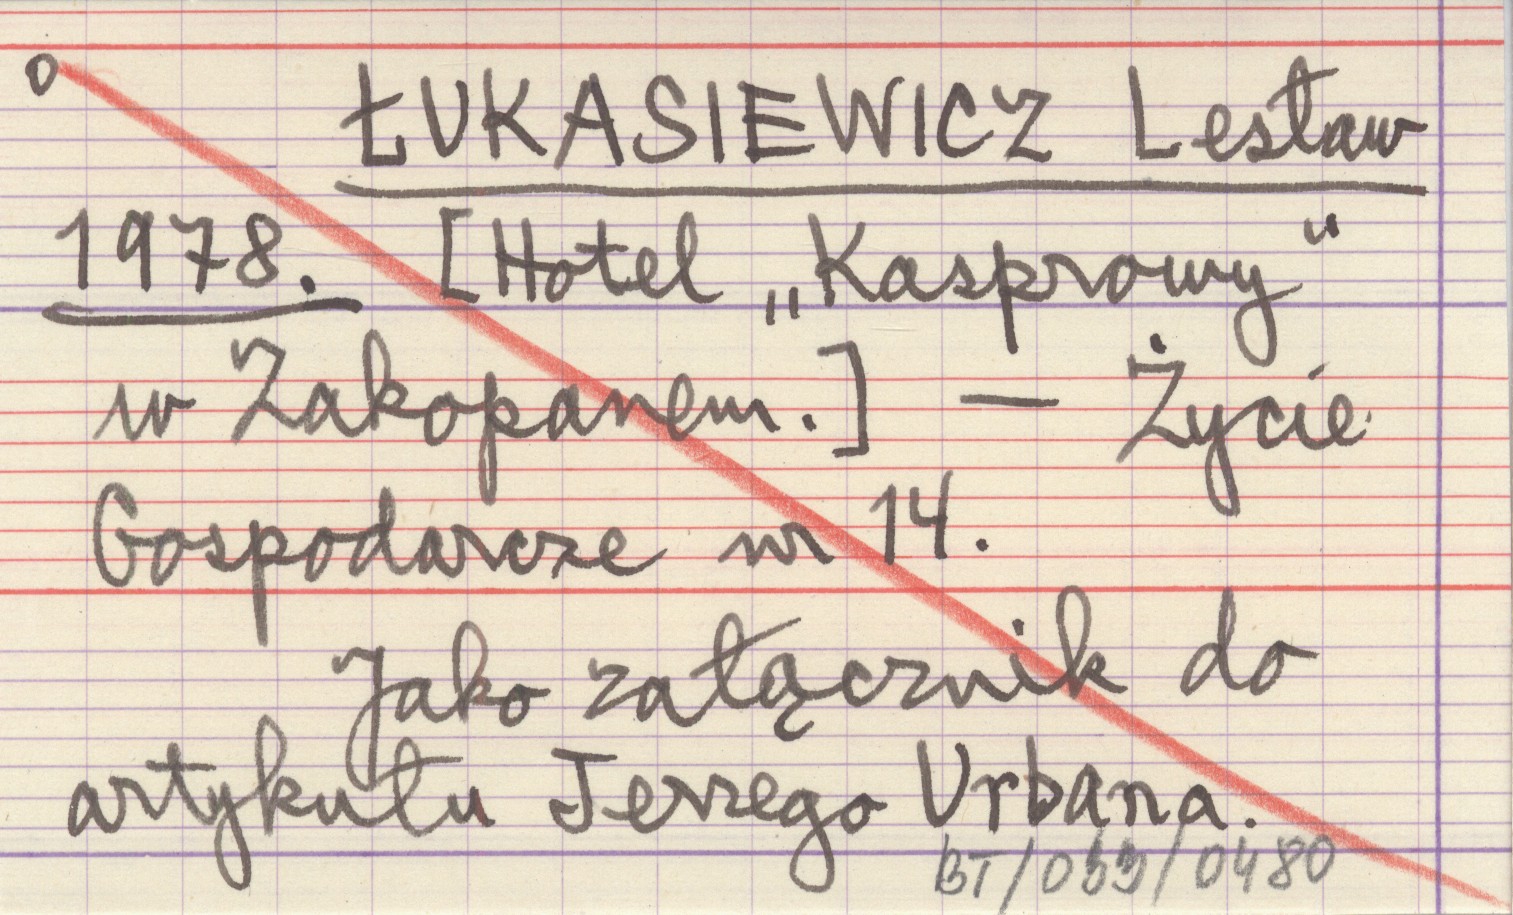 o ŁUKASIEWICZ Lesław
1978. [Hotel „Kasprowy"
w Zakopanem.] — Życie
Gospodarcze nr 14.
Jako załącznik do
artykułu Jerzego Urbana.